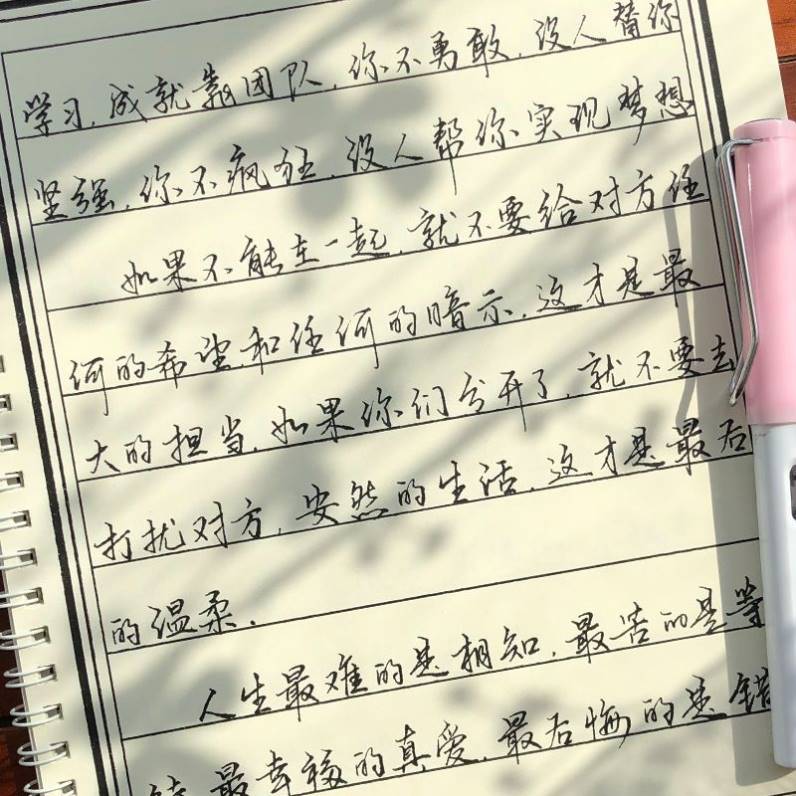 学习，成就靠团队，你不勇敢，没人替你
坚强，你不疯狂，没人帮你实现梦想
如果不能在一起，就不要给对方任
何的希望和任何的暗示，这才是最
大的担当，如果你们分开了，就不要去
打扰对方，安然的生活，这才是最后
的温柔.
人生最难的是相知，最苦的是等
待，最幸福的真爱，最后悔的是错